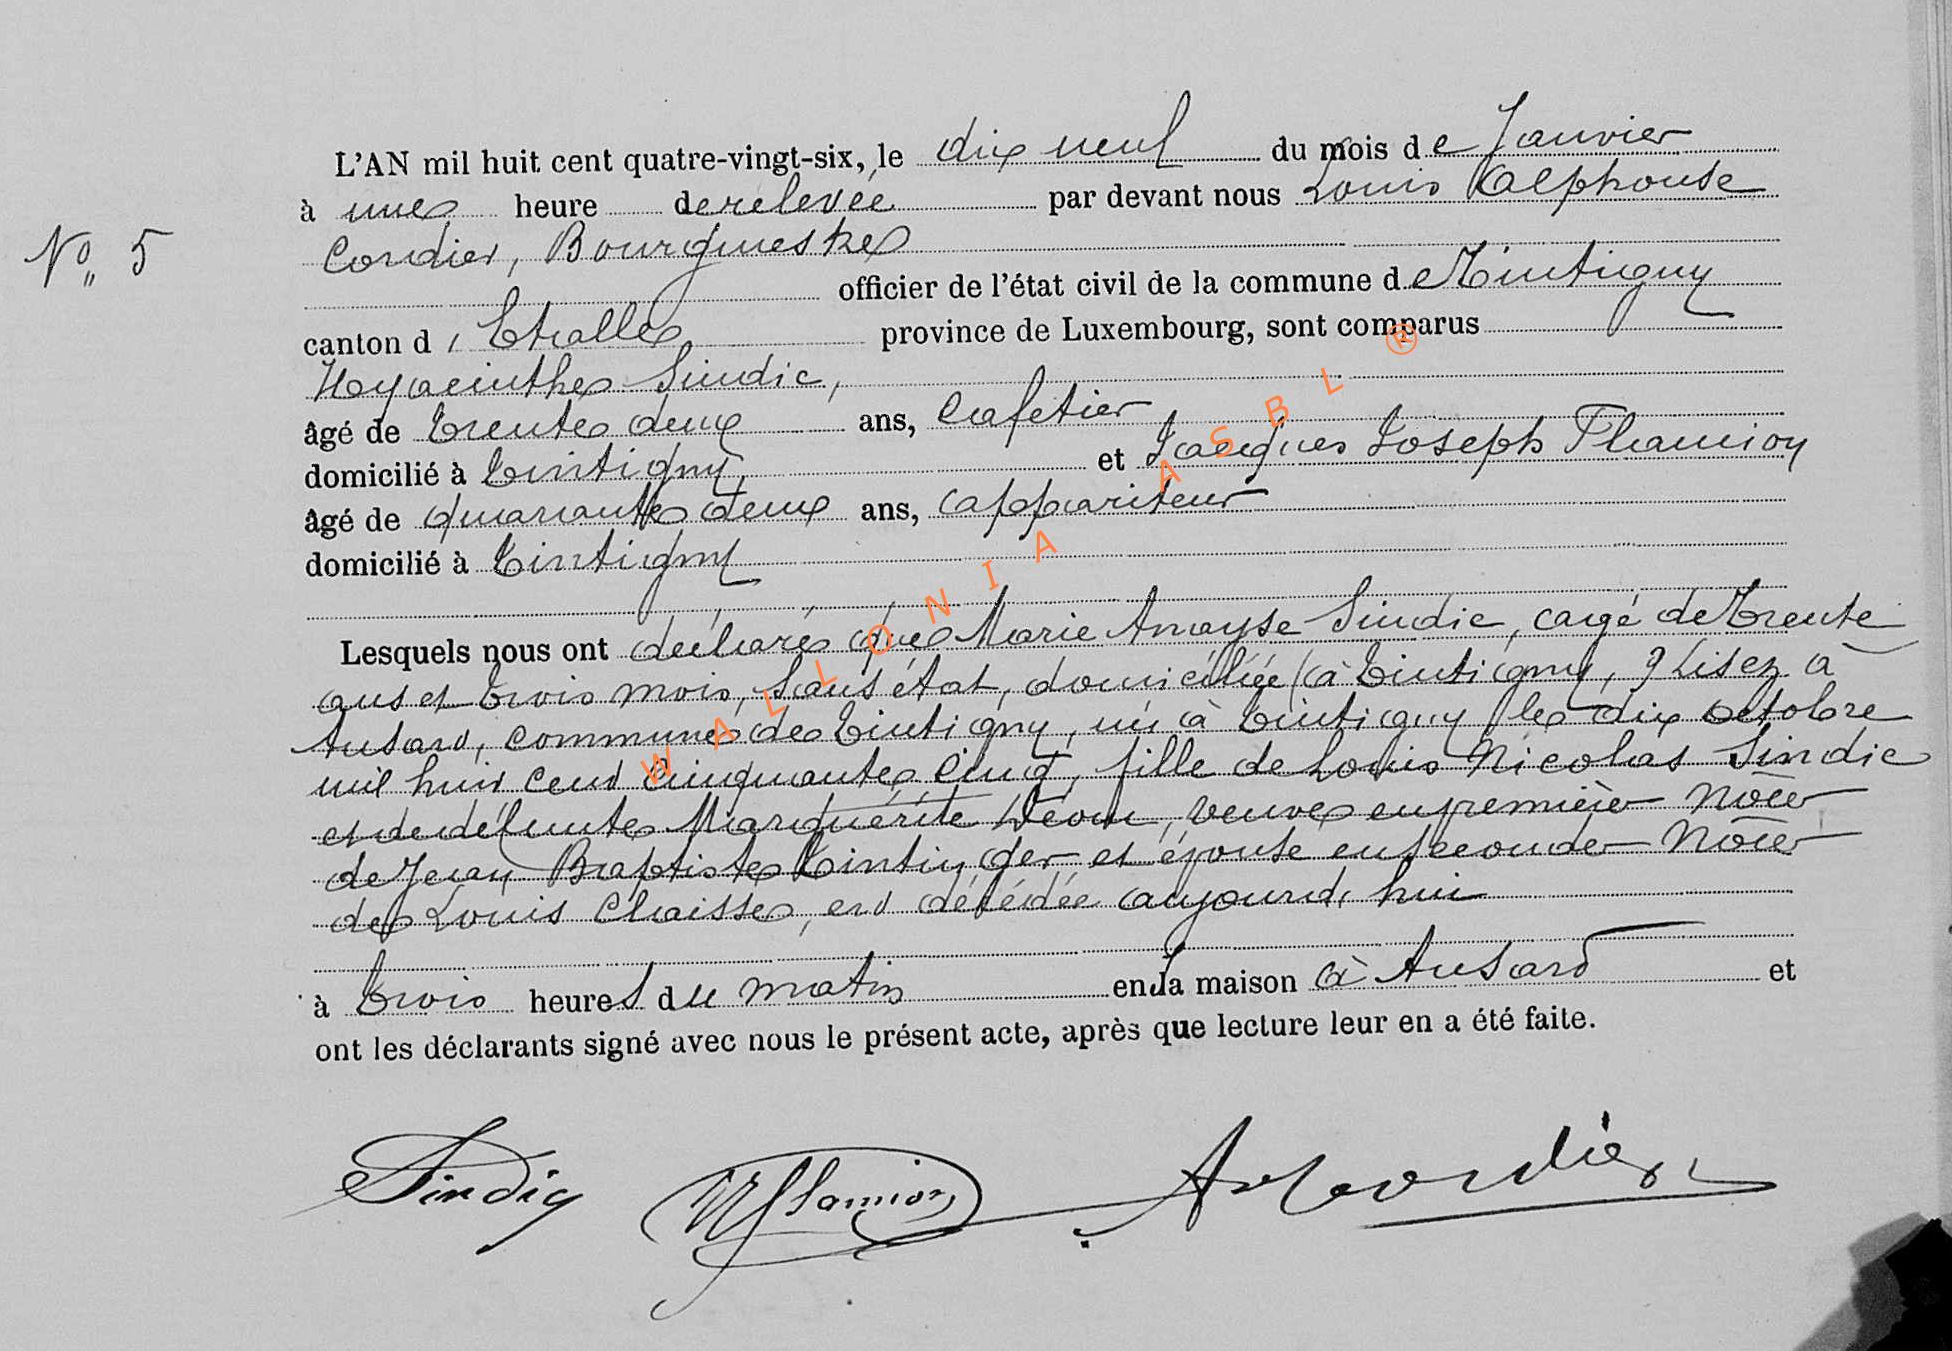 L'AN mil huit cent quatre-vingt-six, le dix neuf du mois de Janvier
à une heure de relevée par devant nous Louis Alphonse
No 5
Cordier, Bourgmestre
officier de l'état civil de la commune de Tintigny
canton d'Etalle province de Luxembourg, sont comparus
Hyacinthe Sindic,
âgé de trente deux ans, cafetier
domicilié à Tintigny, et Jacques Joseph Flamion
âgé de quarante deux ans, appariteur
domicilié à Tintigny
Lesquels nous ont déclaré que Marie Anayse Sindic, agé de trente
ans et trois mois, sans état, domiciliée (à Tintigny,) Lisez à
Ansard, commune de Tintigny, né à Tintigny le dix octobre
mil huit cent cinquante cinq, fille de Louis Nicolas Sindic
et de défunte Marguérite Déom, veuve en premièr noce
de Jean Baptiste Tintinger et épouse en seconde noce
de Louis Chaisse, est décédée aujourd'hui
à trois heures du matin en la maison à Ansard et
ont les déclarants signé avec nous le présent acte, après que lecture leur en a été faite.
Sindic Flamion Cordier
WALLONIA ASBL ®